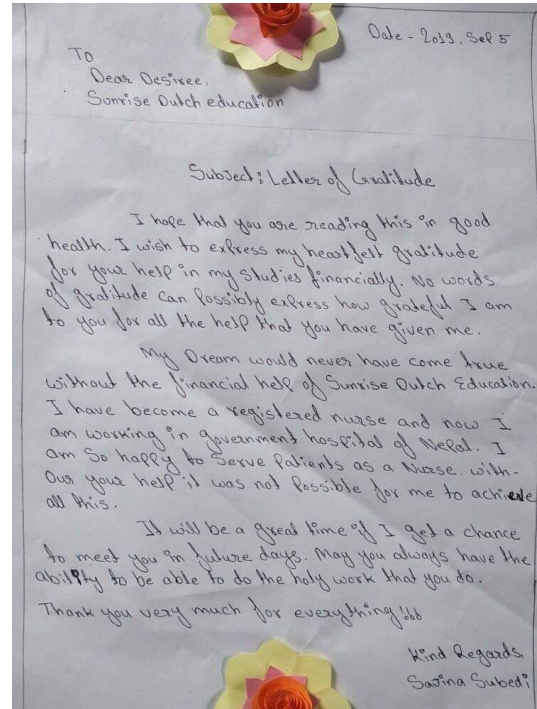 Date - 2019, Sep 5
To
Dear Desiree,
Sunrise Dutch education
Subject: Letter of Gratitude
I hope that you are reading this in good
health. I wish to express my heartfelt gratitude
for your help in my studies financially. No words
of gratitude can possibly express how grateful I am
to you for all the help that you have given me.
My Dream would never have come true
without the financial help of Sunrise Dutch Education.
I have become a registered nurse and now I
am working in government hospital of Nepal. I
am so happy to serve patients as a Nurse. with-
our your help it was not possible for me to achieve
all this.
It will be a great time if I get a chance
to meet you in future days. May you always have the
ability to be able to do the holy work that you do.
Thank you very much for everything!!!
Kind Regards,
Sarina Subedi